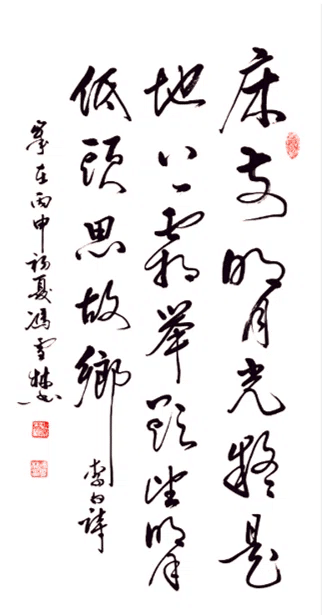 床前明月光疑是
地上霜举头望明月
低頭思故鄉
李白詩
岁在丙申初夏馮雪林书